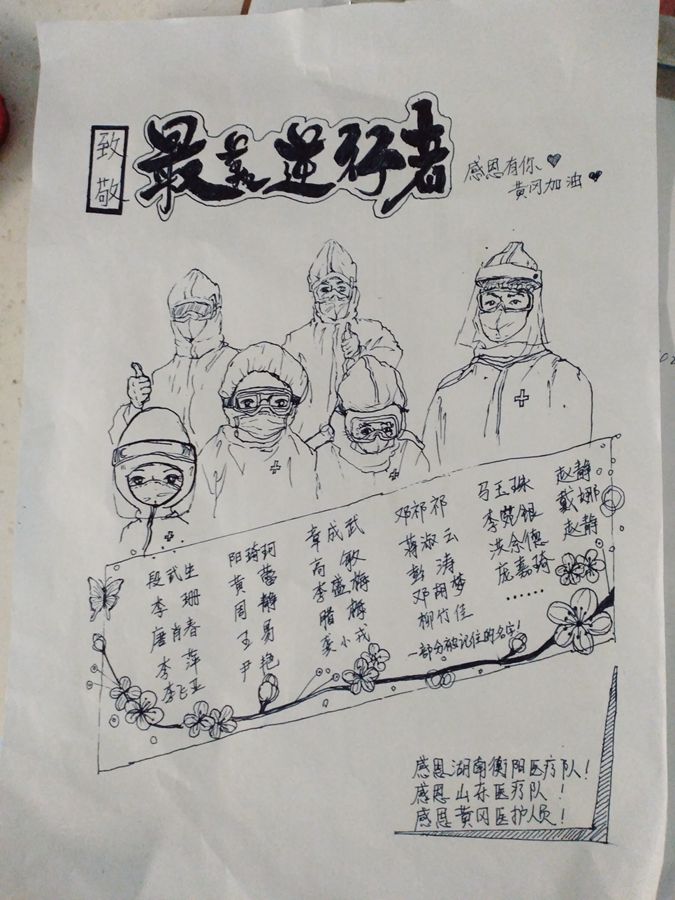 致敬
最美逆行者
感恩有你
黄冈加油
段武生
李珊
唐肖春
李萍
李飞亚
阳琦珂
黄蕾
周静
王勇
尹艳
章成武
高敏
李盛梅
腊梅
袭小戎
邓祁祁
蒋淑云
彭涛
邓胡梦
柳竹佳
一部分被记住的名字!
马玉珠
李莞银
洪余德
庞嘉琦
……
赵静
戴娜
赵静
感恩湖南衡阳医疗队!
感恩山东医疗队!
感恩黄冈医护人员!